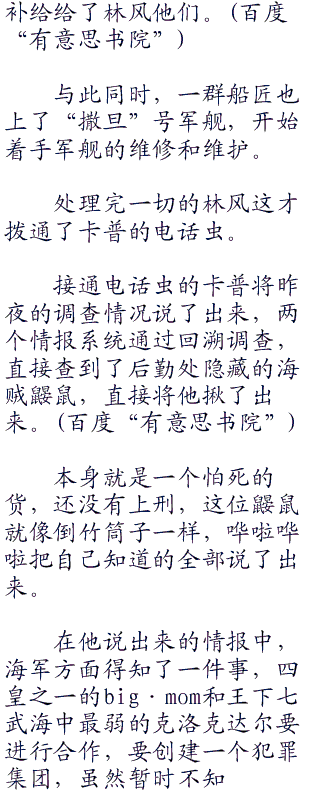 补给给了林风他们。(百度
“有意思书院”)
与此同时，一群船匠也
上了“撒旦”号军舰，开始
着手军舰的维修和维护。
处理完一切的林风这才
拨通了卡普的电话虫。
接通电话虫的卡普将昨
夜的调查情况说了出来，两
个情报系统通过回溯调查，
直接查到了后勤处隐藏的海
贼鼹鼠，直接将他揪了出
来。(百度“有意思书院”)
本身就是一个怕死的
货，还没有上刑，这位鼹鼠
就像倒竹筒子一样，哗啦哗
啦把自己知道的全部说了出
来。
在他说出来的情报中，
海军方面得知了一件事，四
皇之一的big·mom和王下七
武海中最弱的克洛克达尔要
进行合作，要创建一个犯罪
集团，虽然暂时不知